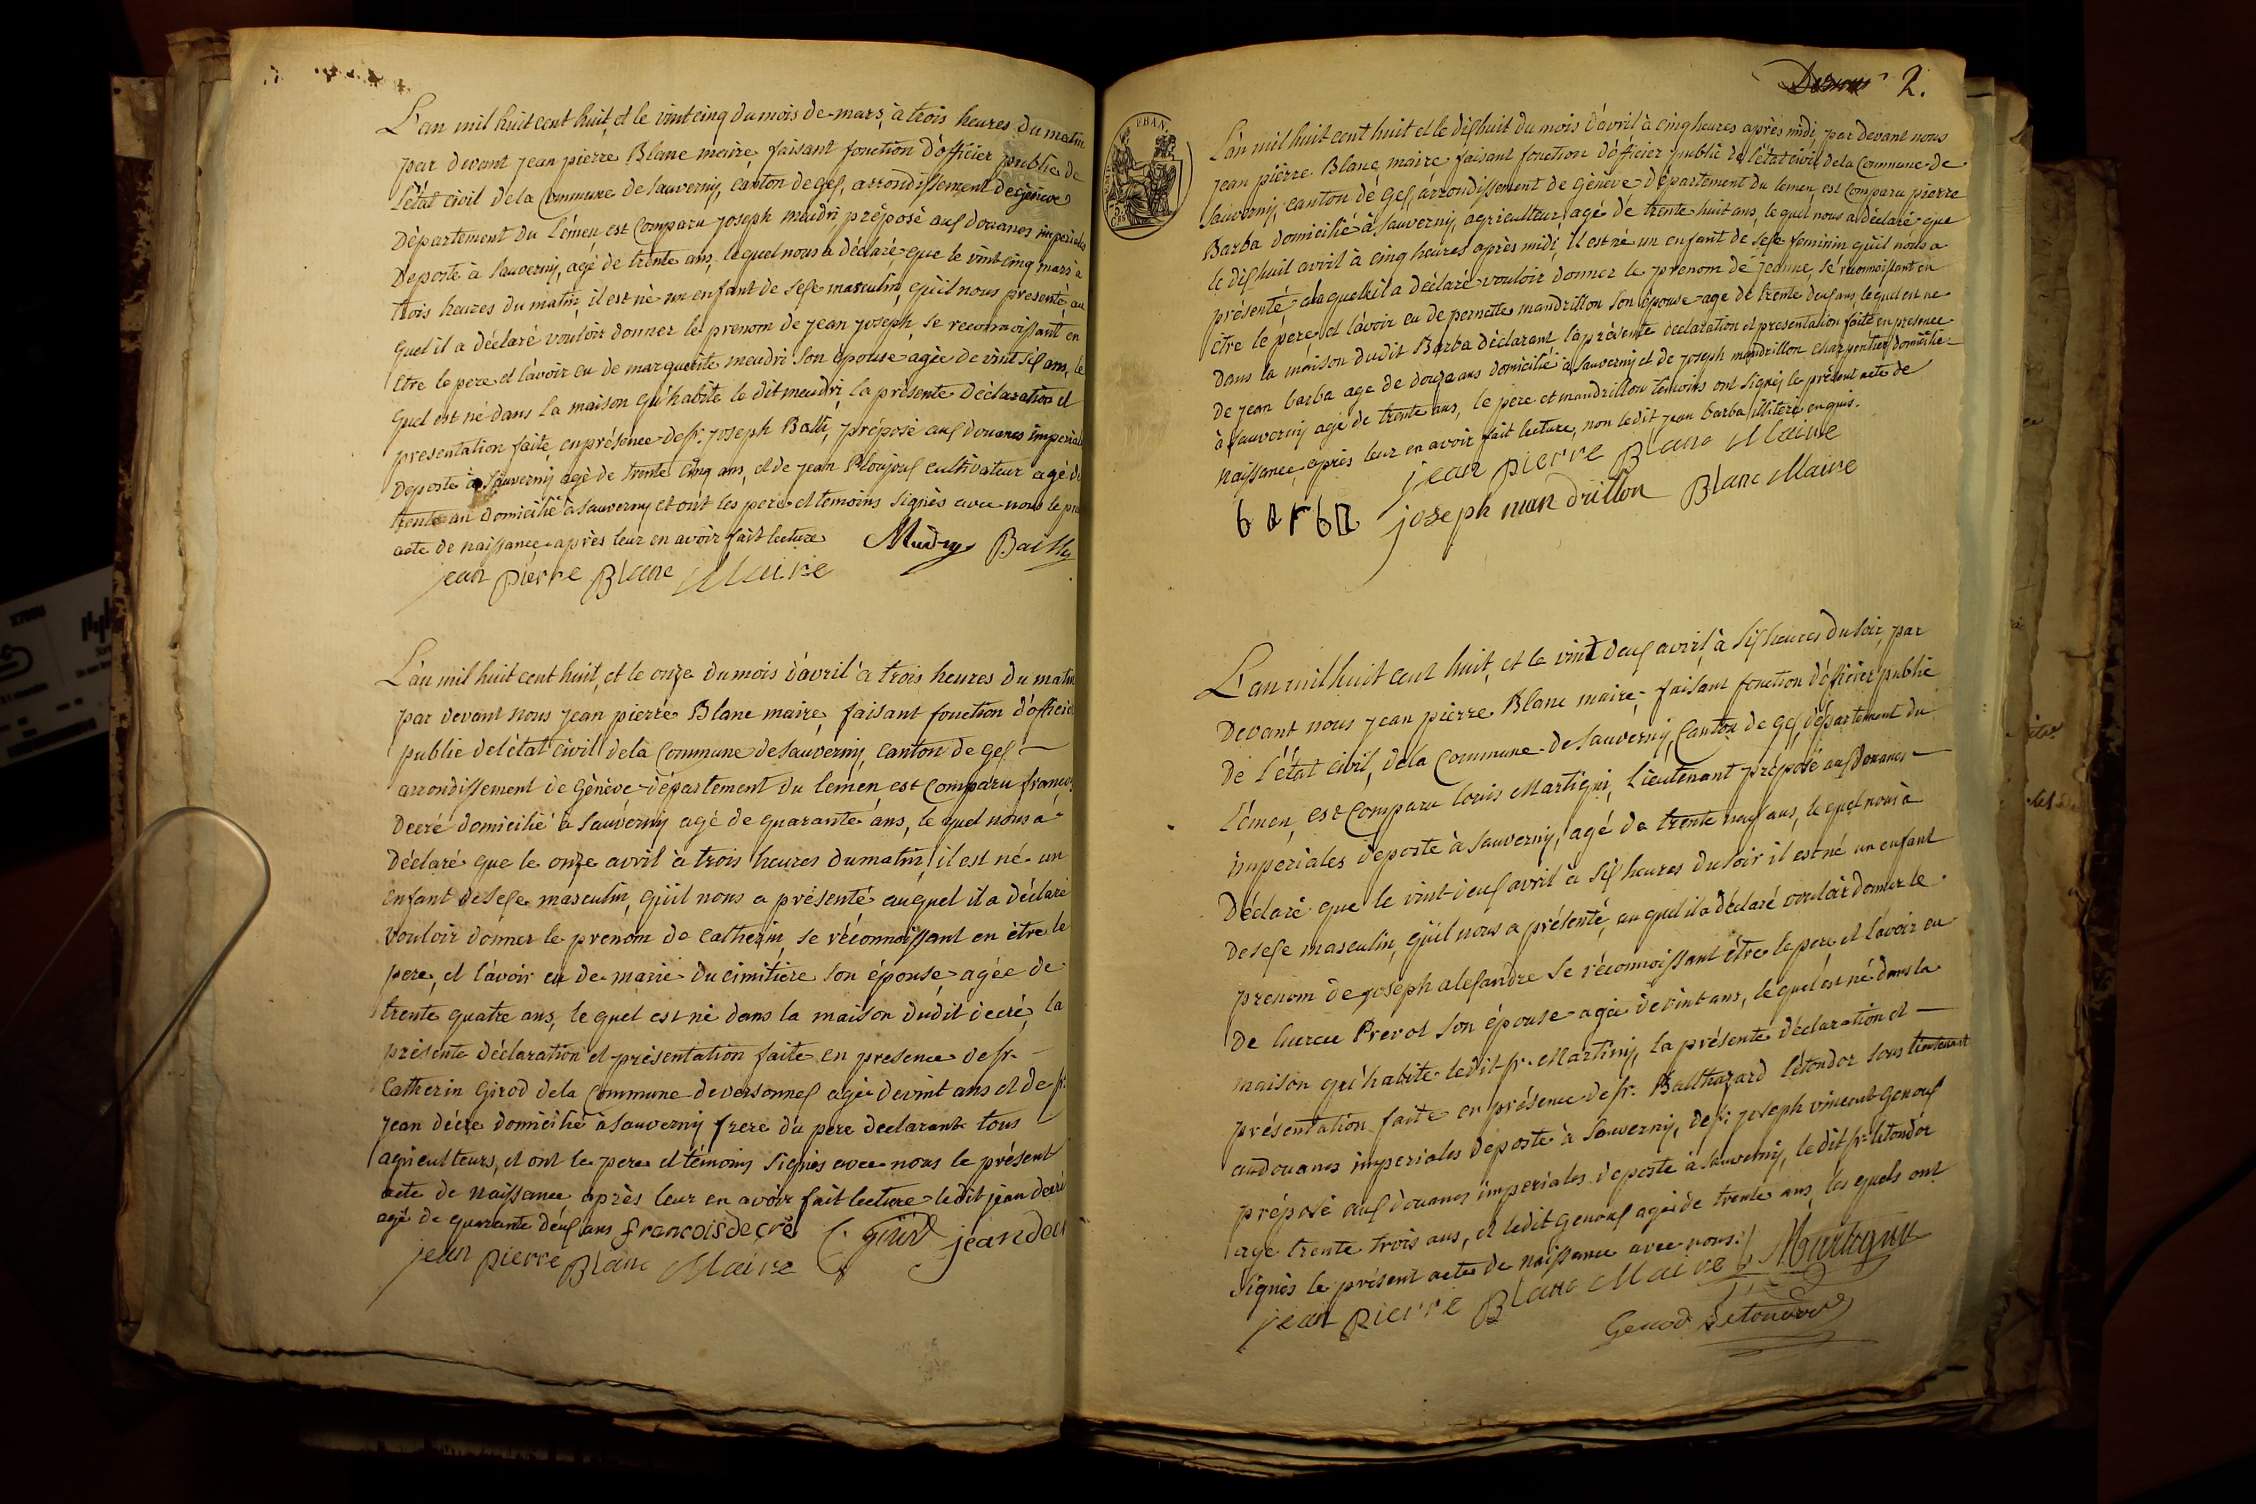 L'an mil huit cent huit, et le vint cinq du mois de mars, à trois heures du matin
par devant jean pierre Blanc maire, faisant fonction d'officier public de
l'état civil de la Commune de Sauverny, canton de Gex, arrondissement de genève
Département du Lémen est Comparu joseph meudri, préposé aux douanes imperiales
Deposte à Sauverny, agé de trente ans, lequel nous a déclaré que le vint cinq mars à
trois heures du matin, il est né un enfant de sexe masculin, qu'il nous presenté, au
quel il a déclaré vouloir donner le prenom de jean joseph, se reconnoissant en
être le pere et l'avoir eu de marguerite meudri son épouse agée de vint six ans, le
quel est né dans la maison qu'habite le dit meudri, la présente déclaration et
presentation faite en présence de sr. joseph Balli, préposé aux douanes imperiales
Deposte à Sauverny agé de trente cinq ans, et de jean Ploujoux cultivateur agé de
trente an domicilié à sauverny et ont les pere et temoins signés avec nous le
acte de naissance après leur en avoir fait lecture Mudry Bailly
jean pierre Blanc Maire
L'an mil huit cent huit, et le onze du mois d'avril à trois heures du matin
par devant nous jean pierre Blanc maire faisant fonction d'officier
public de l'état civil de la Commune de Sauverny, canton de gex
arrondissement de Génève département du lemen est Comparu francois
Decré domicilié à Sauverny agé de quarante ans, le quel nous a
Déclaré que le onze avril à trois heures du matin, il est né un
enfant de sexe masculin, qu'il nous a présenté auquel il a déclaré
vouloir donner le prenom de catherin, se réconnoissant en être le
pere, et l'avoir eu de marie du cimitière son épouse, agée de
trente quatre ans, le quel est né dans la maison du dit decré, la
présente déclaration et présentation faite en presence de sr.
Catherin Girod de la Commune de versonnex agé de vint ans et de sr.
jean décre domicilié à sauverny frere du pere declarant tous
agriculteurs, et ont le pere et témoins signés avec nous le présent
acte de naissance après leur en avoir fait lecture le dit jean decré
agé de quarante deux ans francois decré C. Girod jean decr
jean pierre Blanc Maire
2.
L'an mil huit cent huit et le dix huit du mois d'avril à cinq heures après midi, par devant nous
jean pierre Blanc, maire faisant fonction d'officier public de l'état civil de la Commune de
Sauverny, canton de Gex, arrondissement de Génève département du lemen, est Comparu pierre
Barba domicilié à Sauverny, agriculteur, agé de trente huit ans, le quel nous a déclaré que
le dix huit avril à cinq heures après midi, il est né un enfant de sexe feminin qu'il nous a
présenté à laquelle il a déclaré vouloir donner le prenom de jeanne, se reconnoissant en
être le pere et l'avoir eu de pernette mandrillon son épouse agé de trente deux ans, lequel est né
Dans la maison du dit Barba déclarant, la présente declaration et presentation faite en presence
De jean barba agé de douze ans domicilié à Sauverny et de joseph mandrillon charpentier domicilié
à Sauverny agé de trente ans, le pere et mandrillon temoins ont signés le présent acte de
naissance, après leur en avoir fait lecture, non ledit jean barba illiteré enquis.
jean pierre Blanc Maire
barba joseph mandrillon Blanc Maire
L'an mil huit cent huit, et le vint deux avril à six heures du soir, par
Devant nous jean pierre Blanc maire, faisant fonction d'officier public
De l'état civil, de la Commune de Sauverny, Canton de gex, département du
Lémen, est Comparu louis Martigni, Lieutenant préposé aux Douanes
impériales deposte à Sauverny, agé de trente neuf ans, le quel nous à
Déclaré que le vint deux avril à six heures du soir il est né un enfant
De sexe masculin, qu'il nous a présenté, au quel il a déclaré vouloir donner le
prenom de joseph alexandre se réconnoissant être le pere, et l'avoir eu
De Prevot son épouse agée de vint ans, le quel est né dans la
maison qu'habite ledit sr. Martini, la présente déclaration et
présentation faite en présence de sr. Balthazard létondor sous lieutenant
au douanes imperiales deposte à Sauverny, de sr. joseph vincent Genoux
préposé aux douanes imperiales deposte à Sauverny, le dit sr. létondor
agé trente trois ans, et ledit genoux agé de trente ans, les quels ont
signés le présent acte de naissance avec nous.
jean pierre Blanc Maire Martigni
Genod Letondor